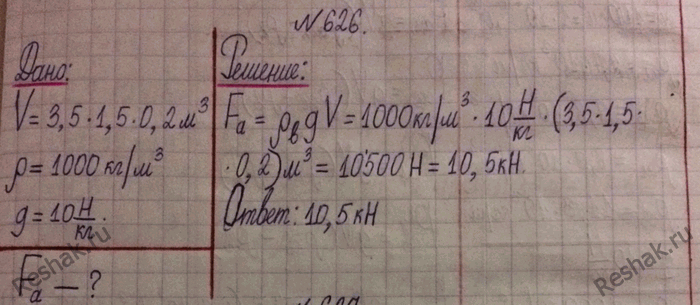 №626.
Дано:
V = 3,5·1,5·0,2 м³
ρ = 1000 кг/м³
g = 10 Н/кг.
Fₐ — ?
Решение:
Fₐ = ρ_в g V = 1000 кг/м³ · 10 Н/кг · (3,5·1,5·
·0,2) м³ = 10500 Н = 10,5 кН.
Ответ: 10,5 кН
Reshak.ru
Reshak.ru
Reshak.ru